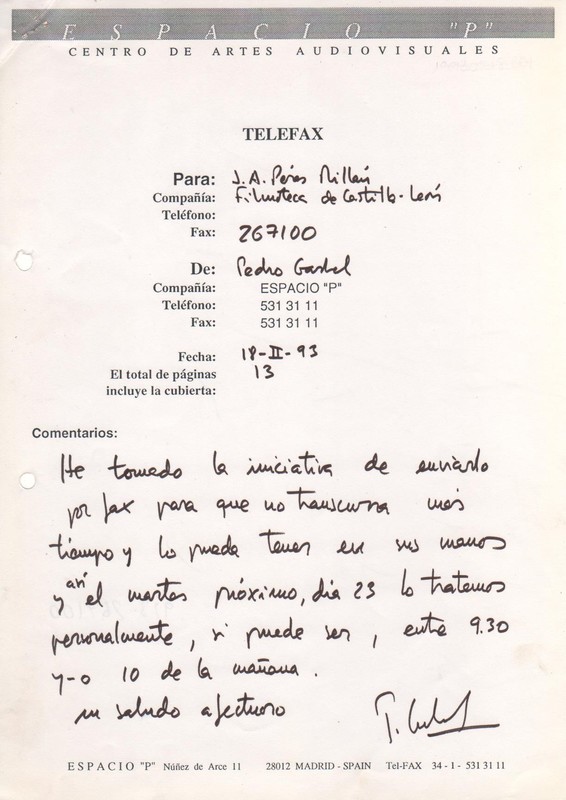 ESPACIO "P"
CENTRO DE ARTES AUDIOVISUALES
TELEFAX
Para: J.A. Pérez Millán
Compañía: Filmoteca de Castilla-León
Teléfono:
Fax: 267100
De: Pedro Garhel
Compañía: ESPACIO "P"
Teléfono: 531 31 11
Fax: 531 31 11
Fecha: 18-II-93
El total de páginas 13
incluye la cubierta:
Comentarios:
He tomado la iniciativa de enviarlo
por fax para que no transcurra más
tiempo y lo pueda tener en sus manos
y así el martes próximo, día 23 lo tratemos
personalmente, si puede ser, entre 9.30
y-o 10 de la mañana.
un saludo afectuoso
ESPACIO "P" Núñez de Arce 11 28012 MADRID - SPAIN Tel-FAX 34 - 1 - 531 31 11